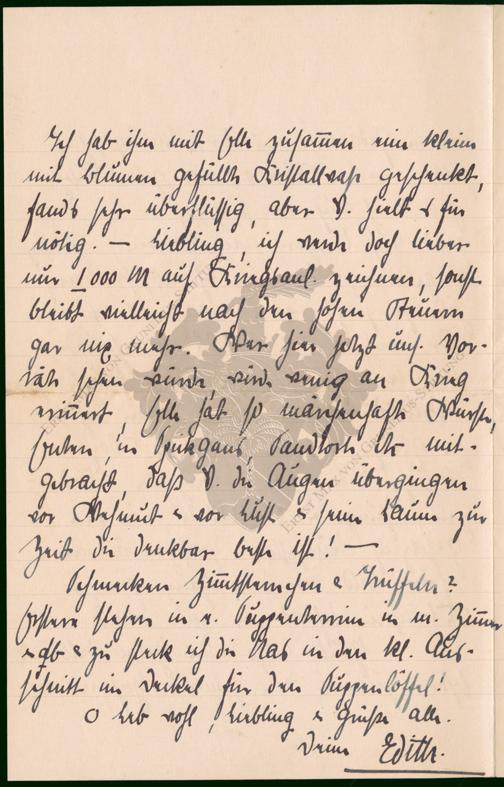 Ich hab ihm mit Elle zusammen eine kleine
mit Blumen gefüllte Kristallvase geschenkt,
fands sehr überflüssig, aber V. hielt es für
nötig. — Liebling, ich werde doch lieber
nur 1000 M auf Kriegsanl. zeichnen, sonst
bleibt vielleicht nach den hohen Steuern
gar nix mehr. Wer hier jetzt uns. Vor-
räte sehen würde, würde wenig an Krieg
erinnert, Elle hat so märchenhafte Würste,
Enten, 'ne Spickgans, etc mit-
gebracht, daß V. die Augen übergingen
vor Wehmut & vor Lust & seine Laune zur
Zeit die denkbar beste ist! —
Schmecken Zimmtsternchen & Trüffeln?
Erstere stehen in d. Puppenterrine in m. Zimmer
& ab & zu steck ich die Nas in den kl. Aus-
schnitt im Deckel für den Puppenlöffel!
O leb wohl, Liebling & Grüße alle.
Deine Edith.